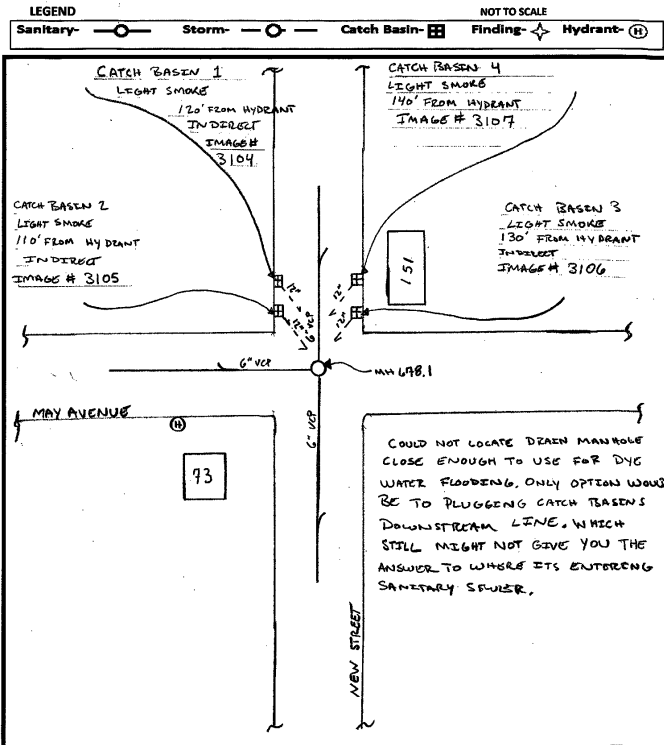 LEGEND
NOT TO SCALE
Sanitary- Storm- Catch Basin- Finding- Hydrant- H
CATCH BASIN 1
LIGHT SMOKE
120' FROM HYDRANT
INDIRECT
IMAGE #
3104
CATCH BASIN 4
LIGHT SMOKE
140' FROM HYDRANT
IMAGE # 3107
CATCH BASIN 2
LIGHT SMOKE
110' FROM HYDRANT
INDIRECT
IMAGE # 3105
CATCH BASIN 3
LIGHT SMOKE
130' FROM HYDRANT
INDIRECT
IMAGE # 3106
151
12"
12"
12"
12"
6" VCP
6" VCP
MH 678.1
MAY AVENUE
H
6" VCP
73
COULD NOT LOCATE DRAIN MANHOLE
CLOSE ENOUGH TO USE FOR DYE
WATER FLOODING. ONLY OPTION WOU
BE TO PLUGGING CATCH BASINS
DOWNSTREAM LINE. WHICH
STILL MIGHT NOT GIVE YOU THE
ANSWER TO WHERE ITS ENTERING
SANITARY SEWER.
NEW STREET